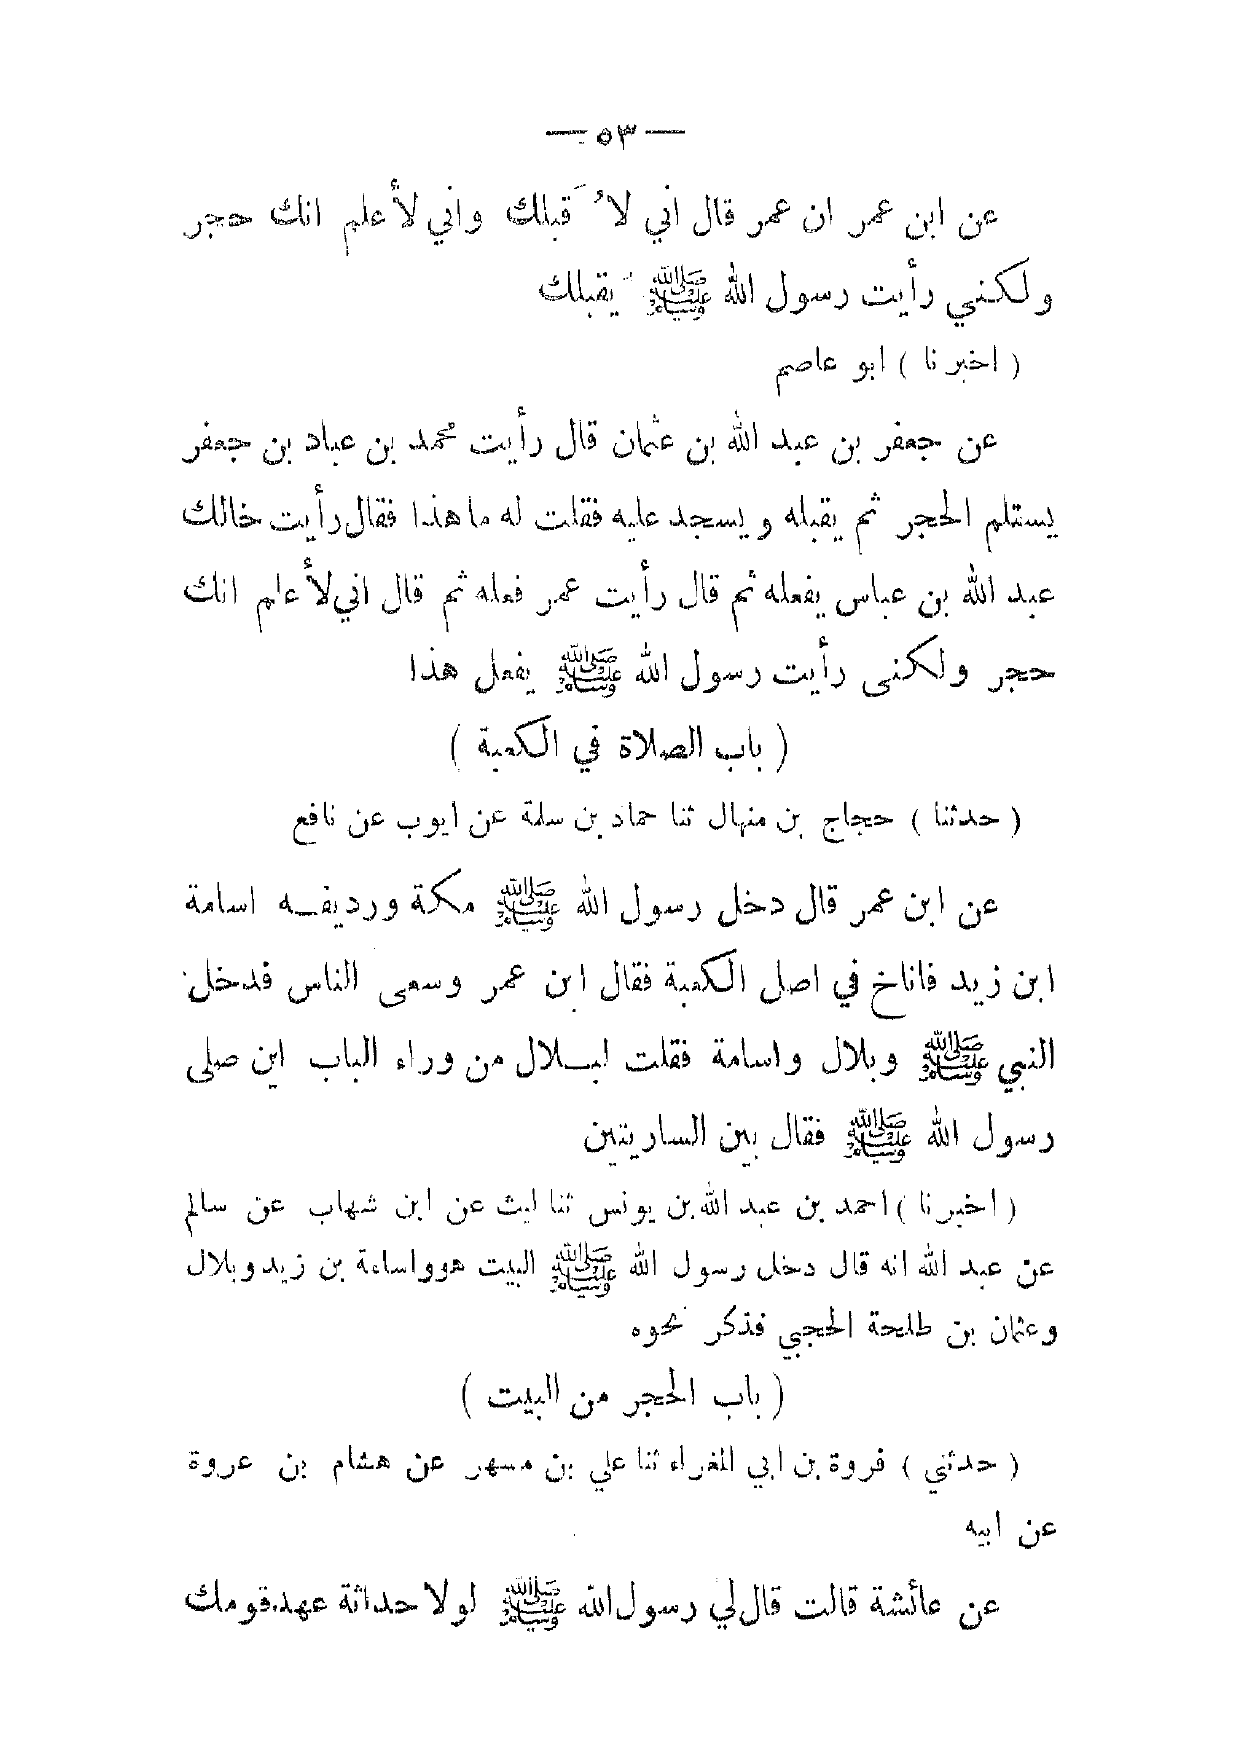 — ٥٣ —
عن ابن عمر ان عمر قال اني لاُ َقبلك واني لأعلم انك حجر
ولكنني رأيت رسول الله ﷺ يقبلك
( اخبرنا ) ابو عاصم
عن جعفر بن عبد الله بن عثمان قال رأيت محمد بن عباد بن جعفر
يستلم الحجر ثم يقبله و يسجد عليه فقلت له ما هذا فقال رأيت خالك
عبد الله بن عباس يفعله ثم قال رأيت عمر فعله ثم قال اني لأعلم انك
حجر ولكنى رأيت رسول الله ﷺ يفعل هذا
( باب الصلاة في الكعبة )
( حدثنا ) حجاج بن منهال ثنا حماد بن سلمة عن ايوب عن نافع
عن ابن عمر قال دخل رسول الله ﷺ مكة ورديفـه اسامة
ابن زيد فاناخ في اصل الكعبة فقال ابن عمر وسعى الناس فدخل
النبي ﷺ وبلال واسامة فقلت لبـلال من وراء الباب اين صلى
رسول الله ﷺ فقال بين الساريتين
( اخبرنا ) احمد بن عبد الله بن يونس ثنا ليث عن ابن شهاب عن سالم
عن عبد الله انه قال دخل رسول الله ﷺ البيت هوواسامة بن زيد وبلال
وعثمان بن طلحة الحجبي فذكر نحوه
( باب الحجر من البيت )
( حدثني ) فروة بن ابي المغراء ثنا علي بن مسهر عن هشام بن عروة
عن ابيه
عن عائشة قالت قال لي رسول الله ﷺ لولا حداثة عهد قومك